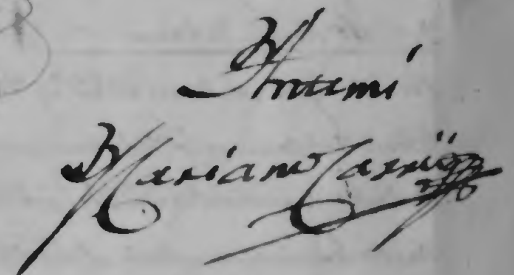 Antemi
Mariano Carrizo